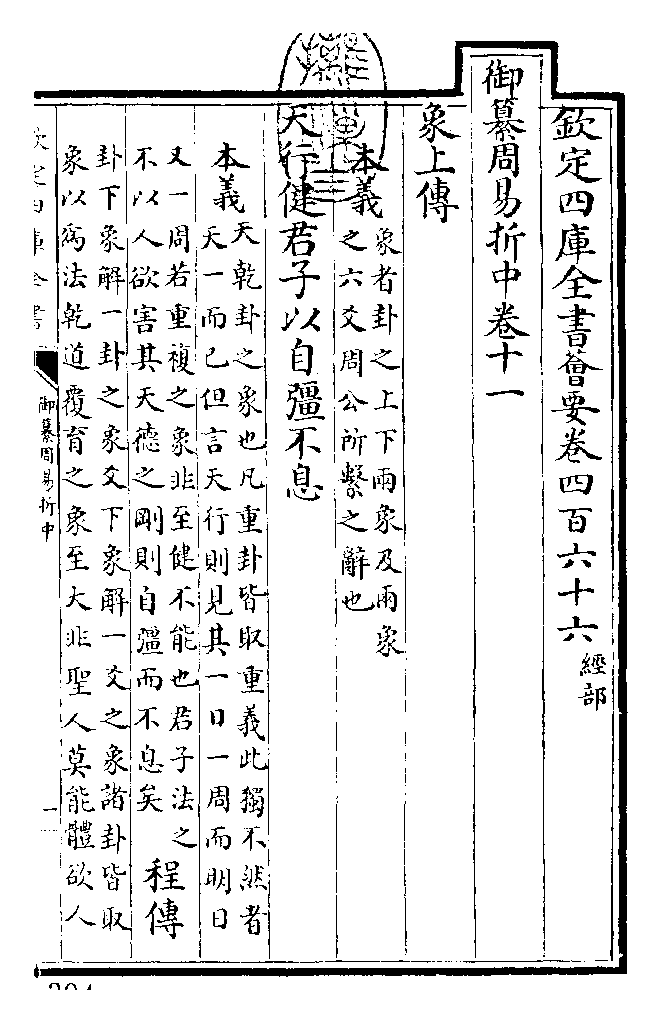 欽定四庫全書薈要卷四百六十六 經部
御纂周易折中卷十一
象上傳
本義 象者卦之上下兩象及兩象
之六爻周公所繫之辭也
天行健君子以自彊不息
本義 天乾卦之象也凡重卦皆取重義此獨不然者
天一而已但言天行則見其一日一周而明日
又一周若重複之象非至健不能也君子法之
不以人欲害其天德之剛則自彊而不息矣 程傳
卦下象解一卦之象爻下象解一爻之象諸卦皆取
象以為法乾道覆育之象至大非聖人莫能體欲人
欽定四庫全書
御纂周易折中
一